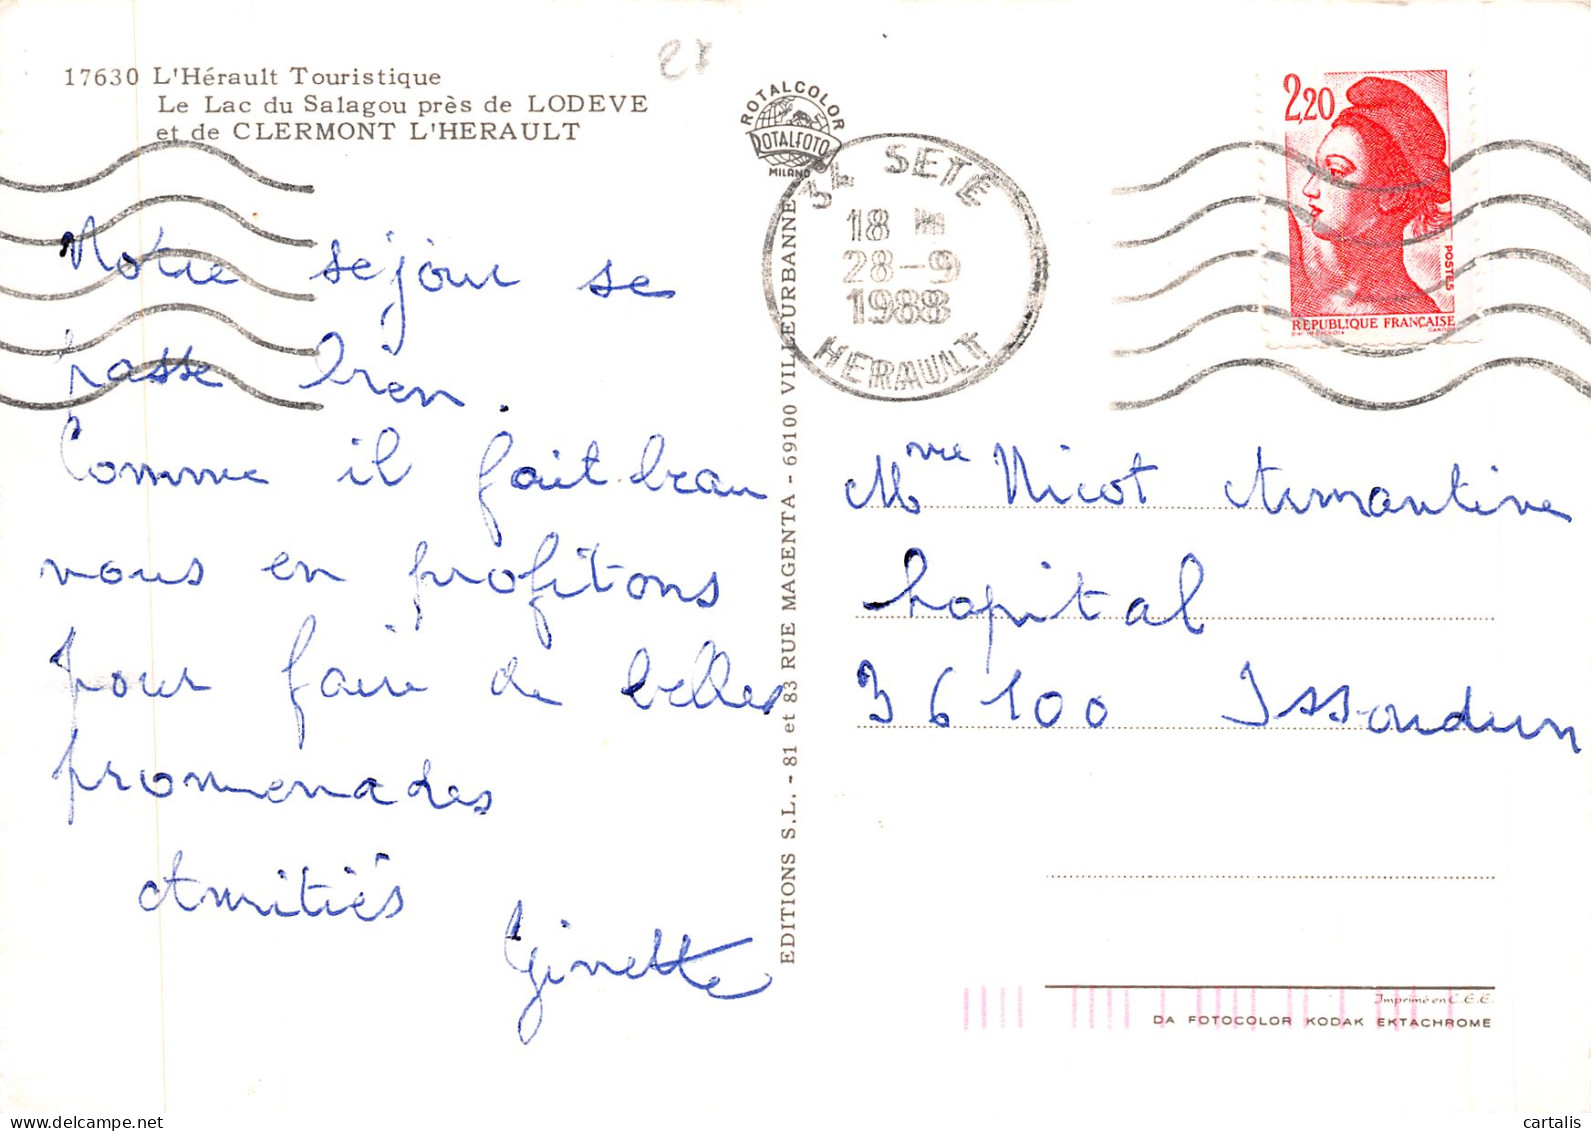 17630 L'Hérault Touristique
Le Lac du Salagou près de LODEVE
et de CLERMONT L'HERAULT
27
ROTALCOLOR
ROTALFOTO
MILANO
34 SETE
18 H
28-9
1988
HERAULT
2,20
POSTES
REPUBLIQUE FRANÇAISE
Notre séjour se
passe bien.
Comme il fait beau
nous en profitons
pour faire de belles
promenades
Amitiés
Ginette
EDITIONS S.L. - 81 et 83 RUE MAGENTA - 69100 VILLEURBANNE
Mme Nicot Armantine
hopital
36100 Issoudun
Imprimé en C.E.E.
DA FOTOCOLOR KODAK EKTACHROME
delcampe.net
cartalis